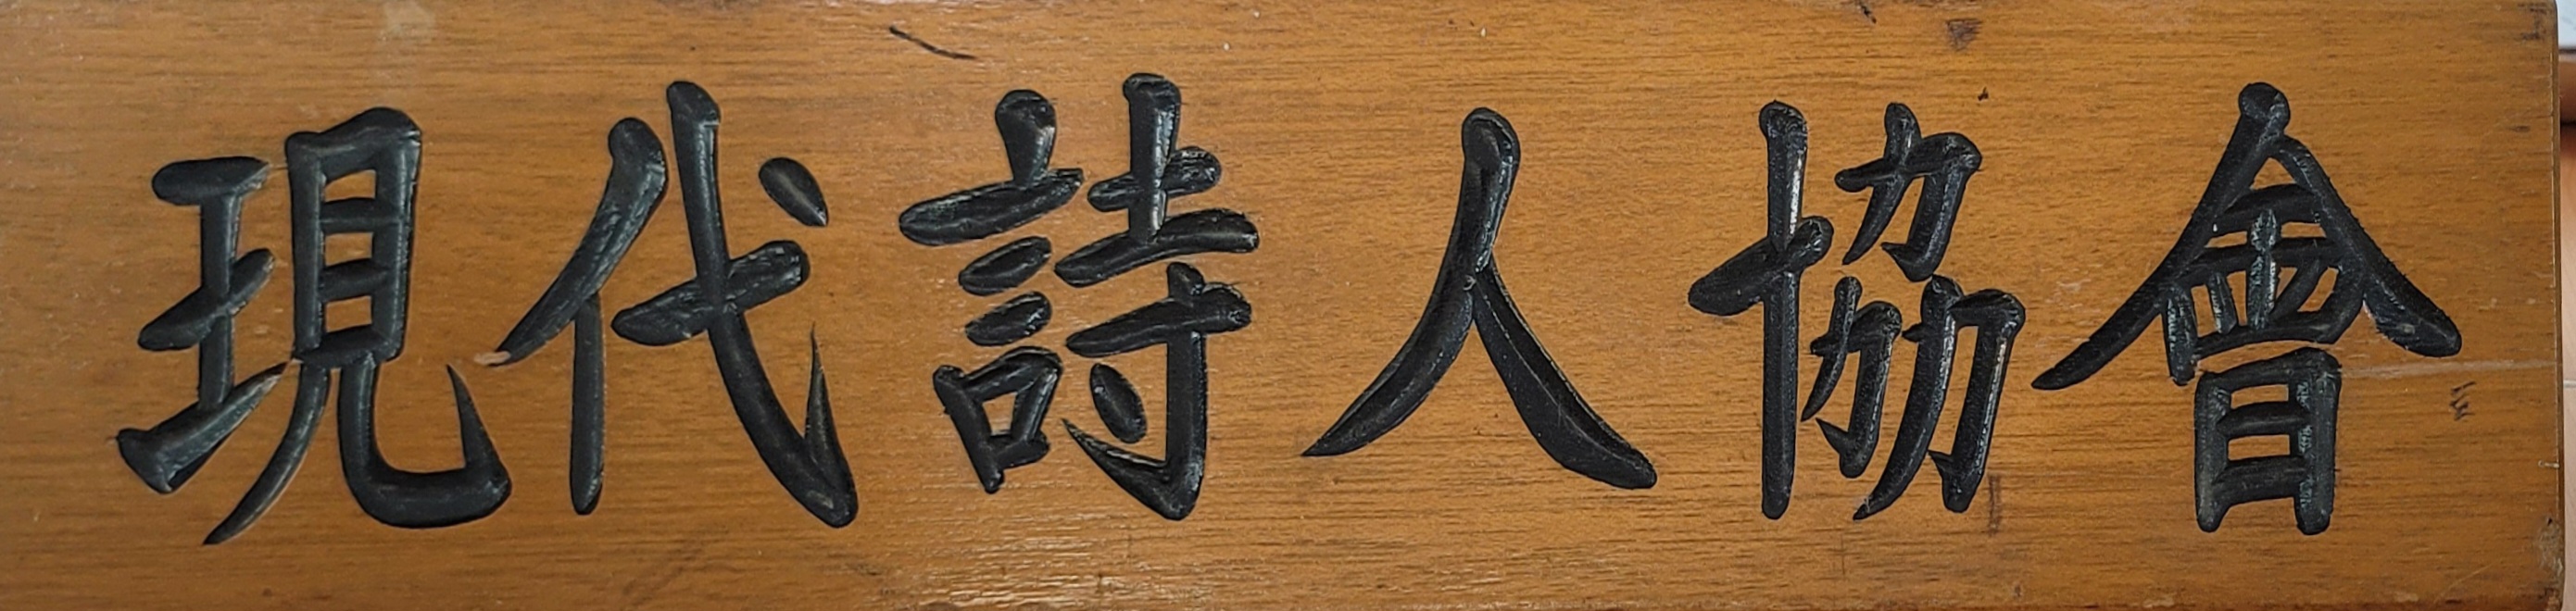 現代詩人協會